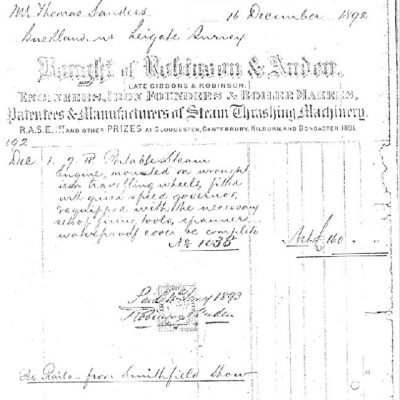 Mr Thomas Sanders 16 December 1892
Buckland nr Reigate Surrey
Bought of Robinson & Auden,
(LATE GIBBONS & ROBINSON,)
ENGINEERS, IRON FOUNDERS & BOILER MAKERS,
Patentees & Manufacturers of Steam Thrashing Machinery.
R.A.S.E. 1ST AND OTHER PRIZES AT GLOUCESTER, CANTERBURY, KILBURN, AND DONCASTER 1891.
1892
Dec 1. 7 HP Portable Steam
Engine, mounted on wrought
iron travelling wheels, fitted
with quick speed governor,
& equipped with the necessary
set of firing tools, spanners
waterproof cover &c complete
No 1035 Nett £ 160
Paid Jany 1893
Robinson & Auden
Per Rail - from Smithfield Show